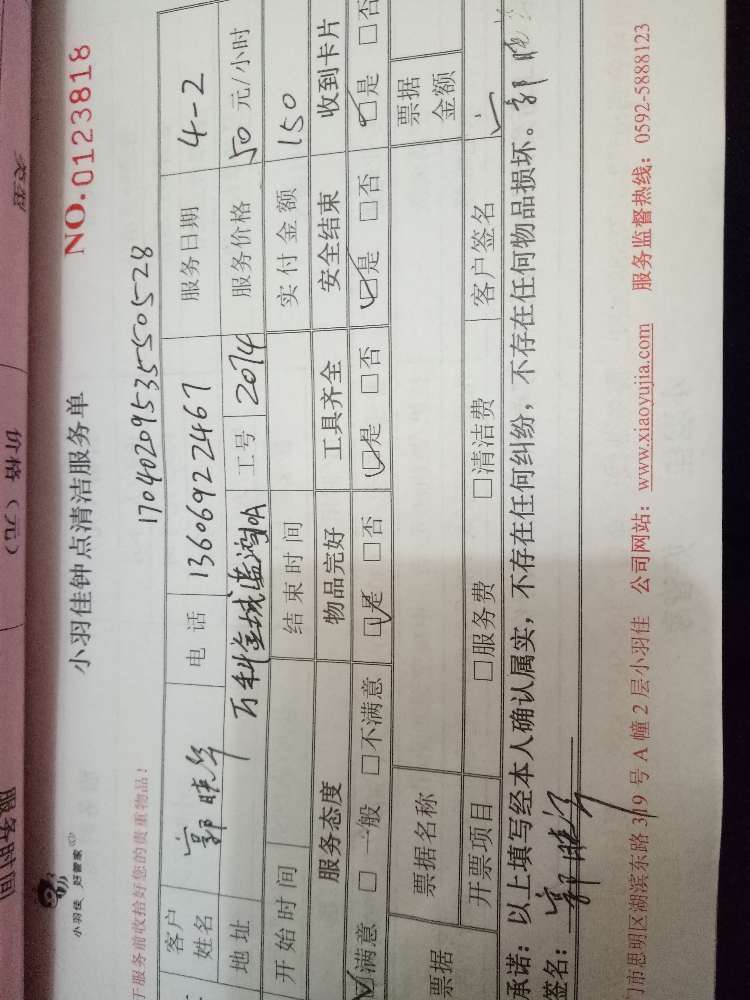 小羽佳 好管家
小羽佳钟点清洁服务单
NO.0123818
于服务前收拾好您的贵重物品！
1704020953550528
客户姓名 郭晓华 电话 13606922467 服务日期 4-2
地址 万科金域蓝湾 工号 2074 服务价格 50 元/小时
开始时间 结束时间 实付金额 150
服务态度 物品完好 工具齐全 安全结束 收到卡片
☑满意 □一般 □不满意 ☑是 □否 ☑是 □否 ☑是 □否 ☑是 □否
票据 票据名称 票据金额
开票项目 □服务费 □清洁费 客户签名
承诺：以上填写经本人确认属实，不存在任何纠纷，不存在任何物品损坏。郭晓
签名：郭晓华
门市思明区湖滨东路 319 号 A 幢 2 层小羽佳 公司网站：www.xiaoyujia.com 服务监督热线：0592-5888123
价格（元）
服务时间